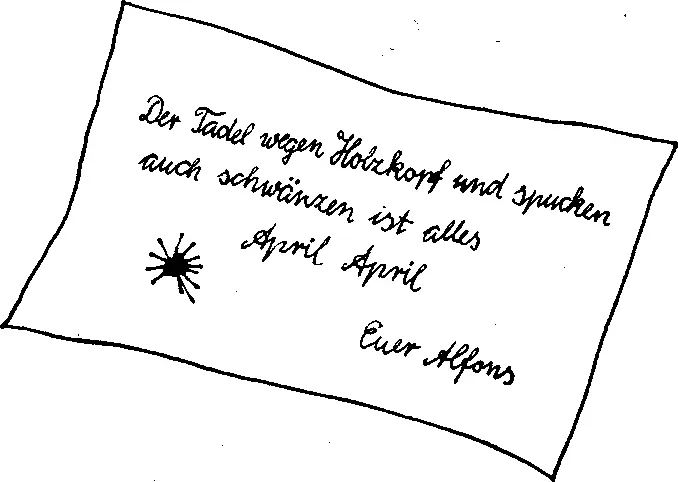 Der Tadel wegen Holzkopf und spucken
auch schwänzen ist alles
April April
Euer Alfons